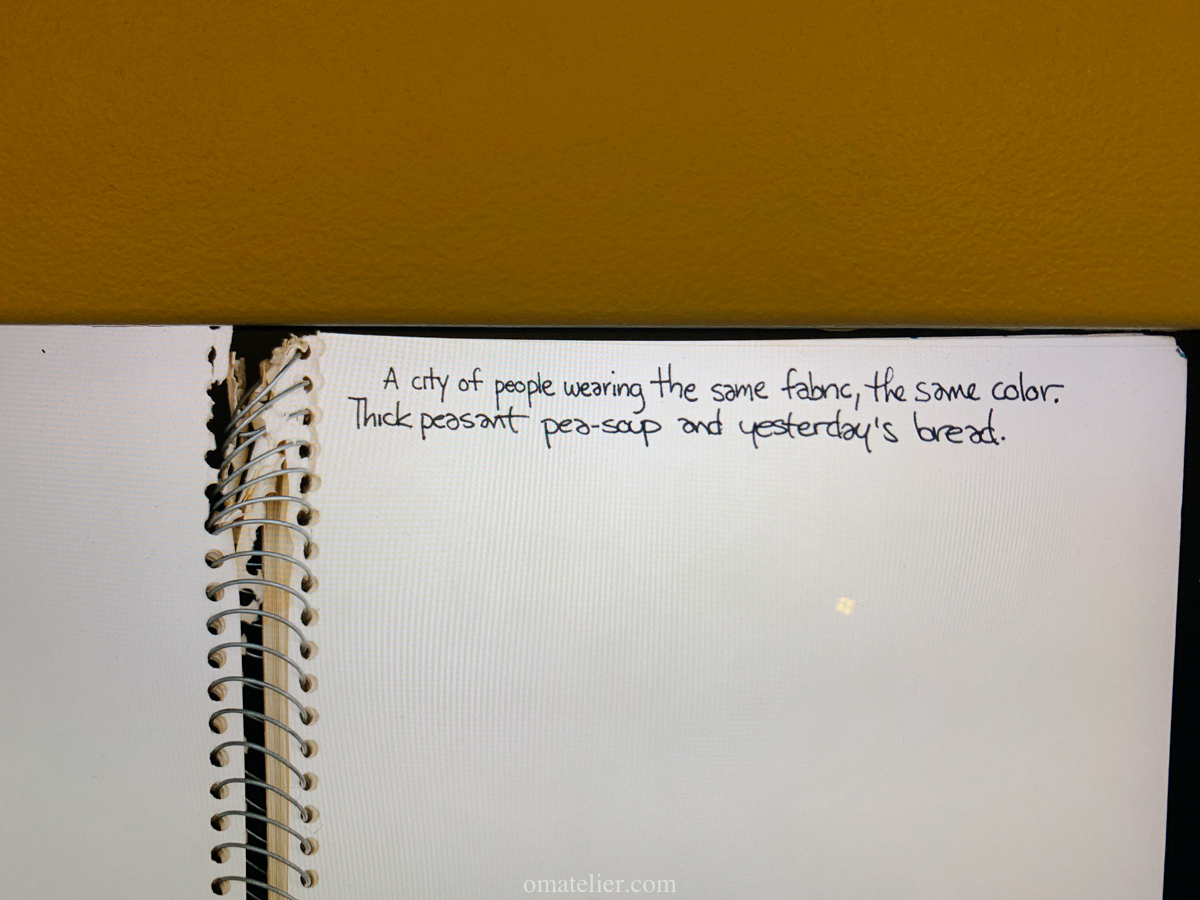 A city of people wearing the same fabric, the same color.
Thick peasant pea-soup and yesterday's bread.
omatelier.com